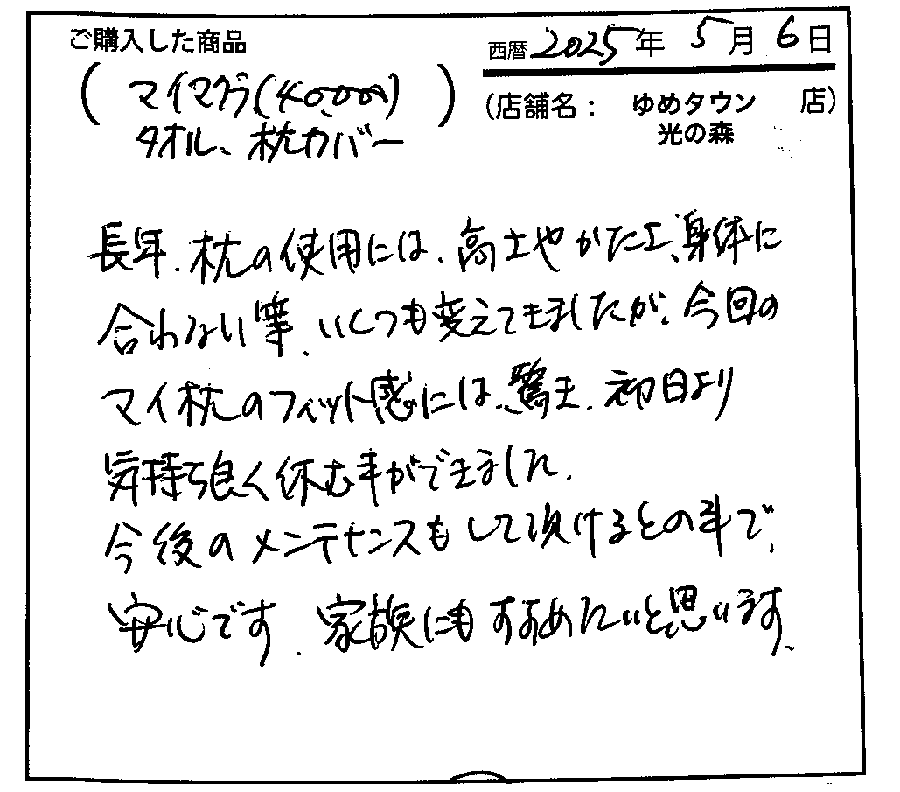 ご購入した商品
西暦 2025年 5月 6日
(マイマクラ(40,000)
タオル、枕カバー)
(店舗名： ゆめタウン 店)
光の森
長年、枕の使用には、高さやかたさ、身体に
合わない等、いくつも変えてきましたが、今回の
マイ枕のフィット感には、驚き、初日より
気持ち良く休む事ができました。
今後のメンテナンスもして頂けるとの事で、
安心です。家族にもすすめたいと思います。